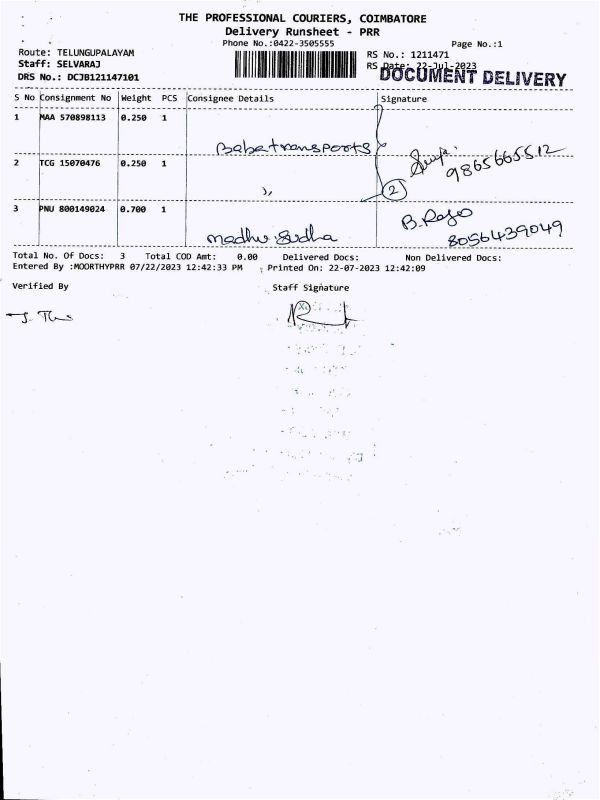 THE PROFESSIONAL COURIERS, COIMBATORE
Delivery Runsheet - PRR
Phone No.:0422-3505555
Page No.:1
Route: TELUNGUPALAYAM
RS No.: 1211471
Staff: SELVARAJ
RS Date: 22-Jul-2023
DOCUMENT DELIVERY
DRS No.: DCJB121147101
S No Consignment No Weight PCS Consignee Details Signature
1 MAA 570898113 0.250 1
Baba transports
2 TCG 15070476 0.250 1
9865665512
2
3 PNU 800149024 0.700 1
B. Rajo
madhu sudha
8056439049
Total No. Of Docs: 3 Total COD Amt: 0.00 Delivered Docs: Non Delivered Docs:
Entered By :MOORTHYPRR 07/22/2023 12:42:33 PM Printed On: 22-07-2023 12:42:09
Verified By Staff Signature